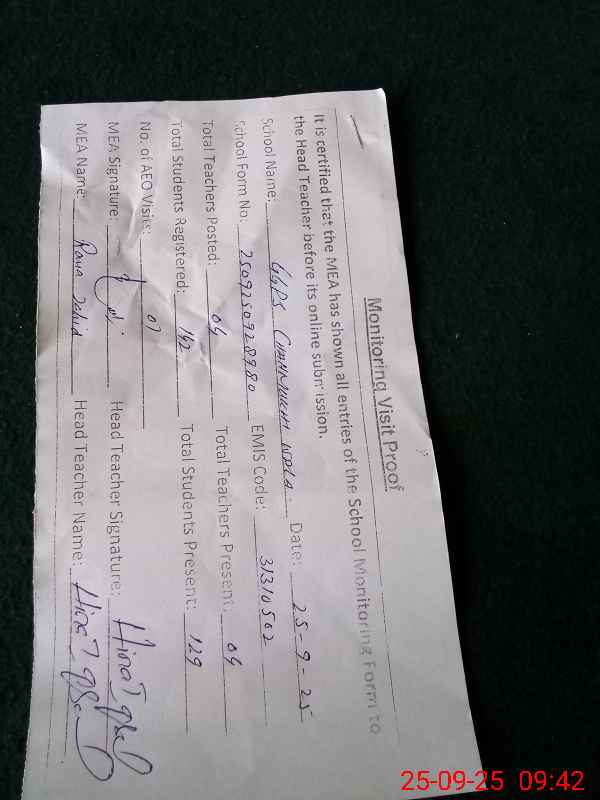 Monitoring Visit Proof
It is certified that the MEA has shown all entries of the School Monitoring Form to
the Head Teacher before its online submission.
School Name: GGPS Date: 25-9-25
School Form No: 2509250928980 EMIS Code: 31310502
Total Teachers Posted: 04 Total Teachers Present: 04
Total Students Registered: 142 Total Students Present: 129
No. of AEO Visits: 01
MEA Signature: Head Teacher Signature: Hina Iqbal
MEA Name: Rana Zahid Head Teacher Name: Hina Iqbal
25-09-25 09:42